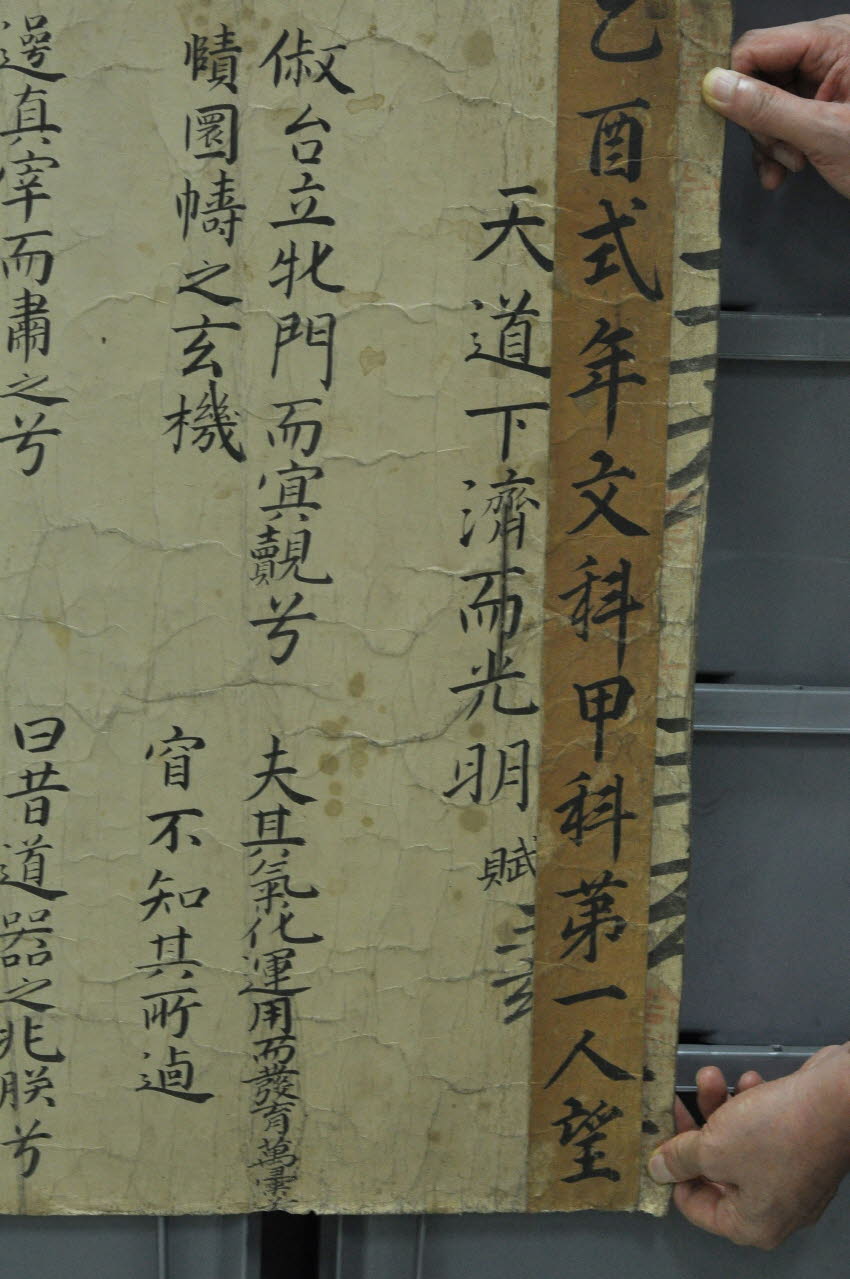 乙酉式年文科甲科第一人望
天道下濟而光明賦
俶台立牝門而寘覿兮
夫其氣化運用而發育萬彙
賾圜幬之玄機
窅不知其所
邊真宰而肅之兮
曰昔道器之兆朕兮